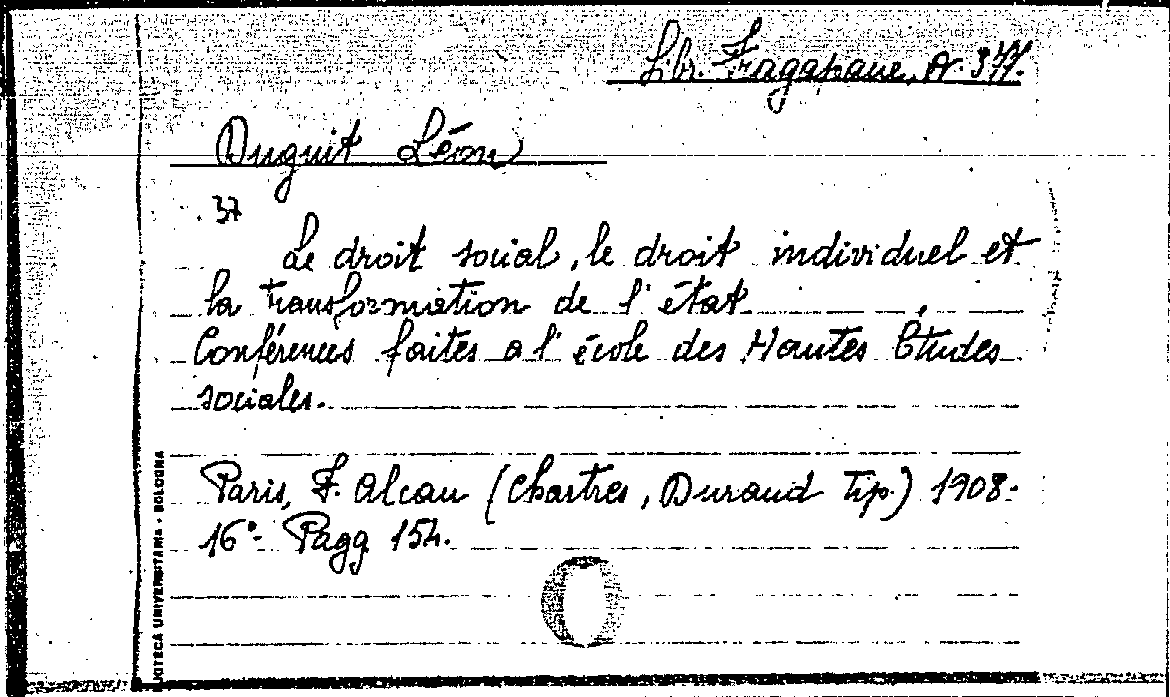 Libr. Fragapane, N. 377.
Duguit Léon
37
Le droit social, le droit individuel et
la transformation de l'état
Conférences faites a l'école des Hautes Études
sociales.
Paris, F. Alcan (Chartres, Durand tip.) 1908-
16°- Pagg 154.
BIBLIOTECA UNIVERSITARIA - BOLOGNA